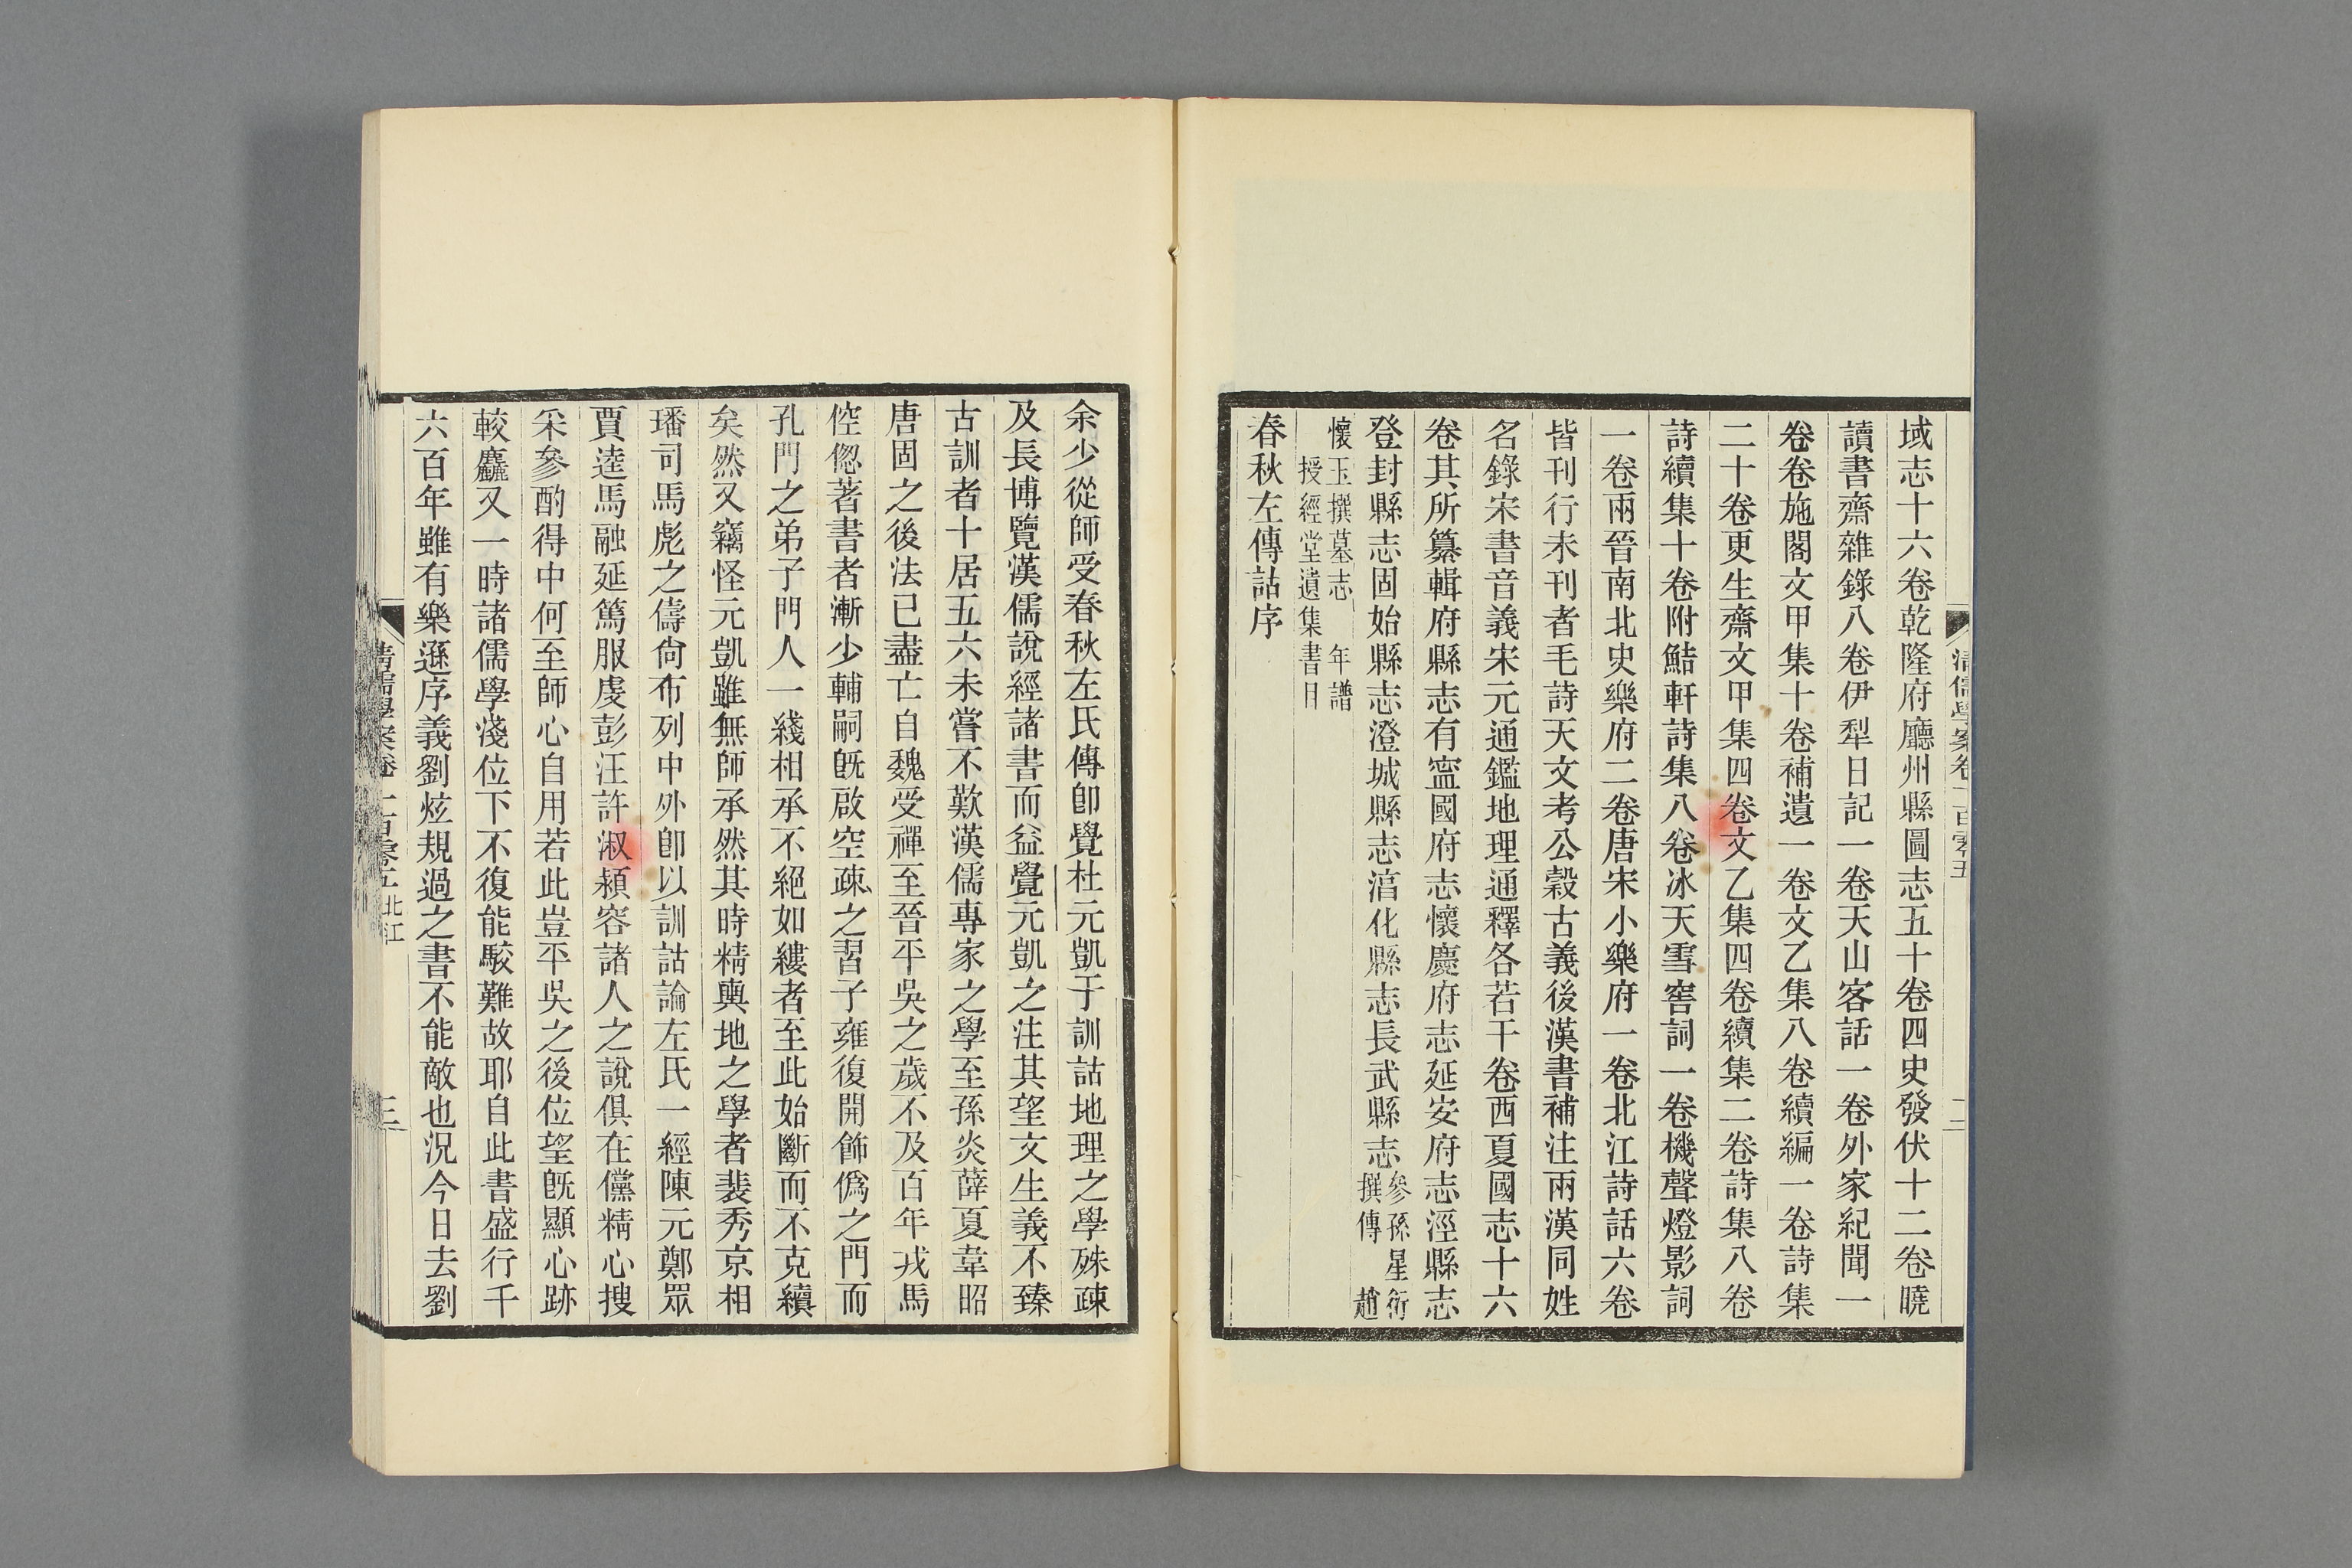 域志十六卷乾隆府廳州縣圖志五十卷四史發伏十二卷曉
讀書齋雜錄八卷伊犁日記一卷天山客話一卷外家紀聞一
卷卷施閣文甲集十卷補遺一卷文乙集八卷續編一卷詩集
二十卷更生齋文甲集四卷文乙集四卷續集二卷詩集八卷
詩續集十卷附鮚軒詩集八卷冰天雪窖詞一卷機聲燈影詞
一卷兩晉南北史樂府二卷唐宋小樂府一卷北江詩話六卷
皆刊行未刊者毛詩天文考公穀古義後漢書補注兩漢同姓
名錄宋書音義宋元通鑑地理通釋各若干卷西夏國志十六
卷其所纂輯府縣志有寍國府志懷慶府志延安府志涇縣志
登封縣志固始縣志澄城縣志湻化縣志長武縣志參孫星衍
撰傳　趙
懷玉撰墓志　年譜
授經堂遺集書目
春秋左傳詁序
余少從師受春秋左氏傳卽覺杜元凱于訓詁地理之學殊疎
及長博覽漢儒說經諸書而益覺元凱之注其望文生義不臻
古訓者十居五六未嘗不歎漢儒專家之學至孫炎薛夏韋昭
唐固之後法已盡亡自魏受禪至晉平吳之歲不及百年戎馬
倥傯著書者漸少輔嗣旣啟空疎之習子雍復開飾僞之門而
孔門之弟子門人一綫相承不絕如縷者至此始斷而不克續
矣然又竊怪元凱雖無師承然其時精輿地之學者裴秀京相
璠司馬彪之儔尙布列中外卽以訓詁論左氏一經陳元鄭眾
賈逵馬融延篤服虔彭汪許淑潁容諸人之說俱在儻精心搜
采參酌得中何至師心自用若此豈平吳之後位望旣顯心跡
較麤又一時諸儒學淺位下不復能駁難故耶自此書盛行千
六百年雖有樂遜序義劉炫規過之書不能敵也況今日去劉
清儒學案卷一百零五 北江
三
清儒學案卷一百零五
二